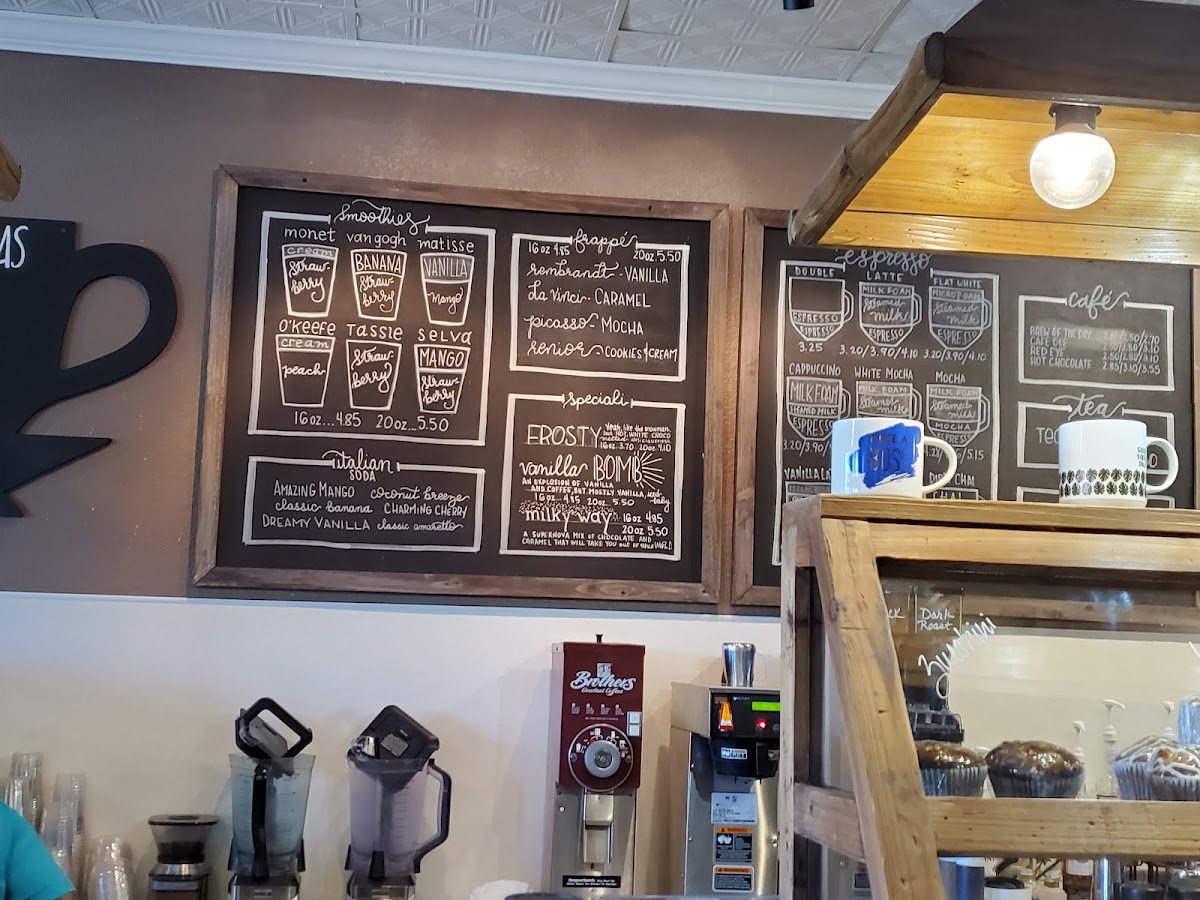 smoothies
monet van gogh matisse
cream
straw-
berry
BANANA
straw-
berry
VANILLA
mango
O'KEEFE TASSIE SELVA
cream
peach
straw
berry
MANGO
straw-
berry
16 oz...4.85 20 oz...5.50
italian
SODA
AMAZING MANGO coconut breeze
classic banana CHARMING CHERRY
DREAMY VANILLA classic amaretto
frappé
16 oz 4.85 20 oz 5.50
rembrandt - VANILLA
da Vinci - CARAMEL
picasso - MOCHA
renior - COOKIES & CREAM
speciali
FROSTY Yeah, like the snowman,
but HOT, WHITE CHOCO
16 oz 3.70 20 oz 4.10
vanilla BOMB
AN EXPLOSION OF VANILLA
AND COFFEE, BUT MOSTLY VANILLA, iced
baby
16 oz 4.85 20 oz 5.50
milky way 16 oz 4.85
20 oz 5.50
A SUPERNOVA MIX OF CHOCOLATE AND
CARAMEL THAT WILL TAKE YOU OUT OF this WORLD
espresso
DOUBLE LATTE FLAT WHITE
ESPRESSO
ESPRESSO
3.25
MILK FOAM
steamed
milk
ESPRESSO
3.20/3.90/4.10
MICRO FOAM
steamed
milk
ESPRESSO
3.20/3.90/4.10
CAPPUCCINO WHITE MOCHA MOCHA
MILK FOAM
STEAMED MILK
ESPRESSO
3.20/3.90/
MILK FOAM
steamed
milk
steamed
milk
MOCHA
ESPRESSO
5.15
VANILLA LA
café
BREW OF THE DAY
CAFE OLE
RED EYE 2.50/2.80/3.10
HOT CHOCOLATE 2.85/3.10/3.55
tea
Brothers
Gourmet Coffees
Dark
Roast
Zucchini